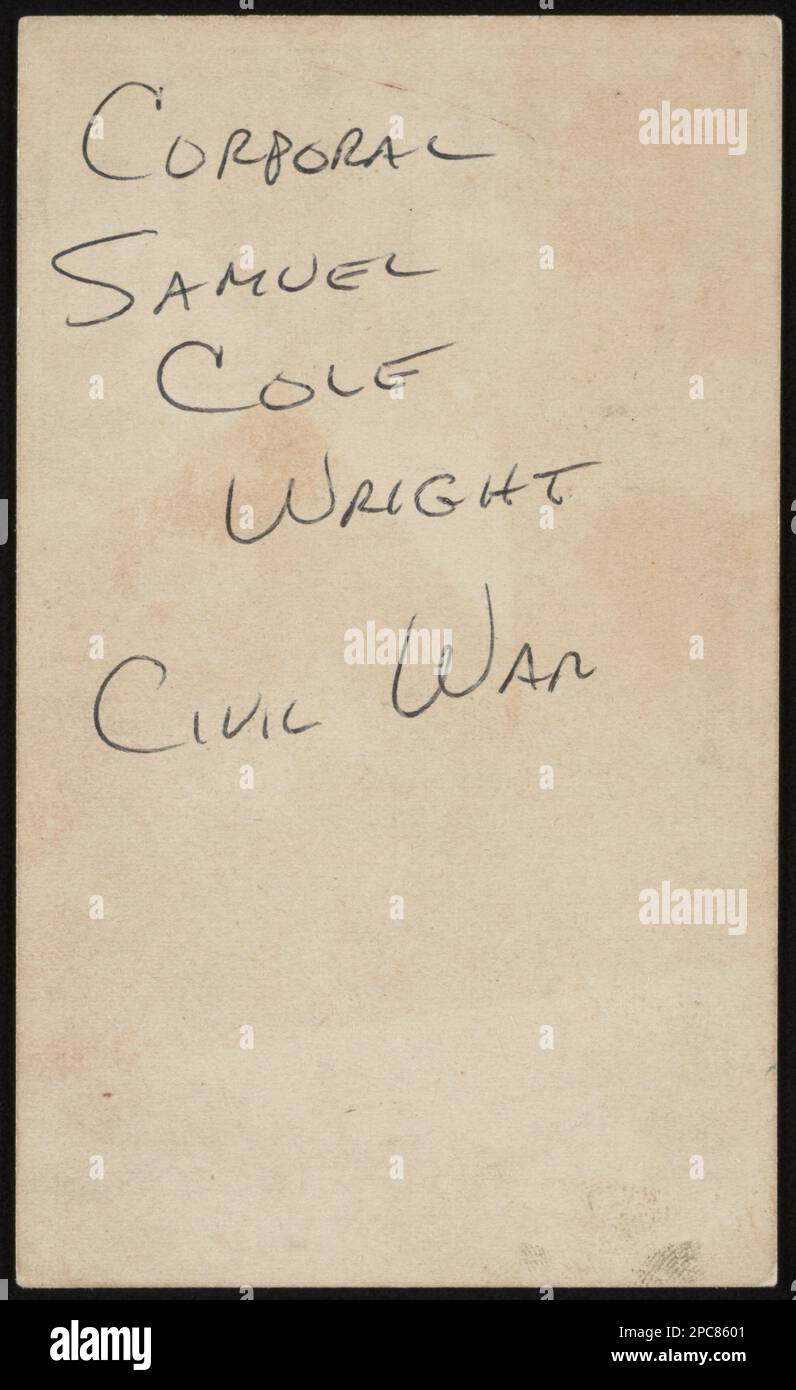 Corporal
Samuel
Cole
Wright
Civil War
alamy
a
alamy
Image ID: 2PC8601
www.alamy.com